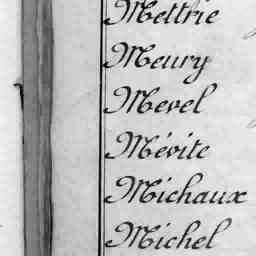 Mettrie
Meury
Mevel
Mévite
Michaux
Michel